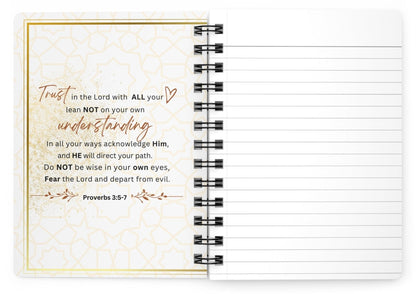 Trust in the Lord with ALL your
lean NOT on your own
understanding
In all your ways acknowledge Him,
and HE will direct your path.
Do NOT be wise in your own eyes,
Fear the Lord and depart from evil.
Proverbs 3:5-7